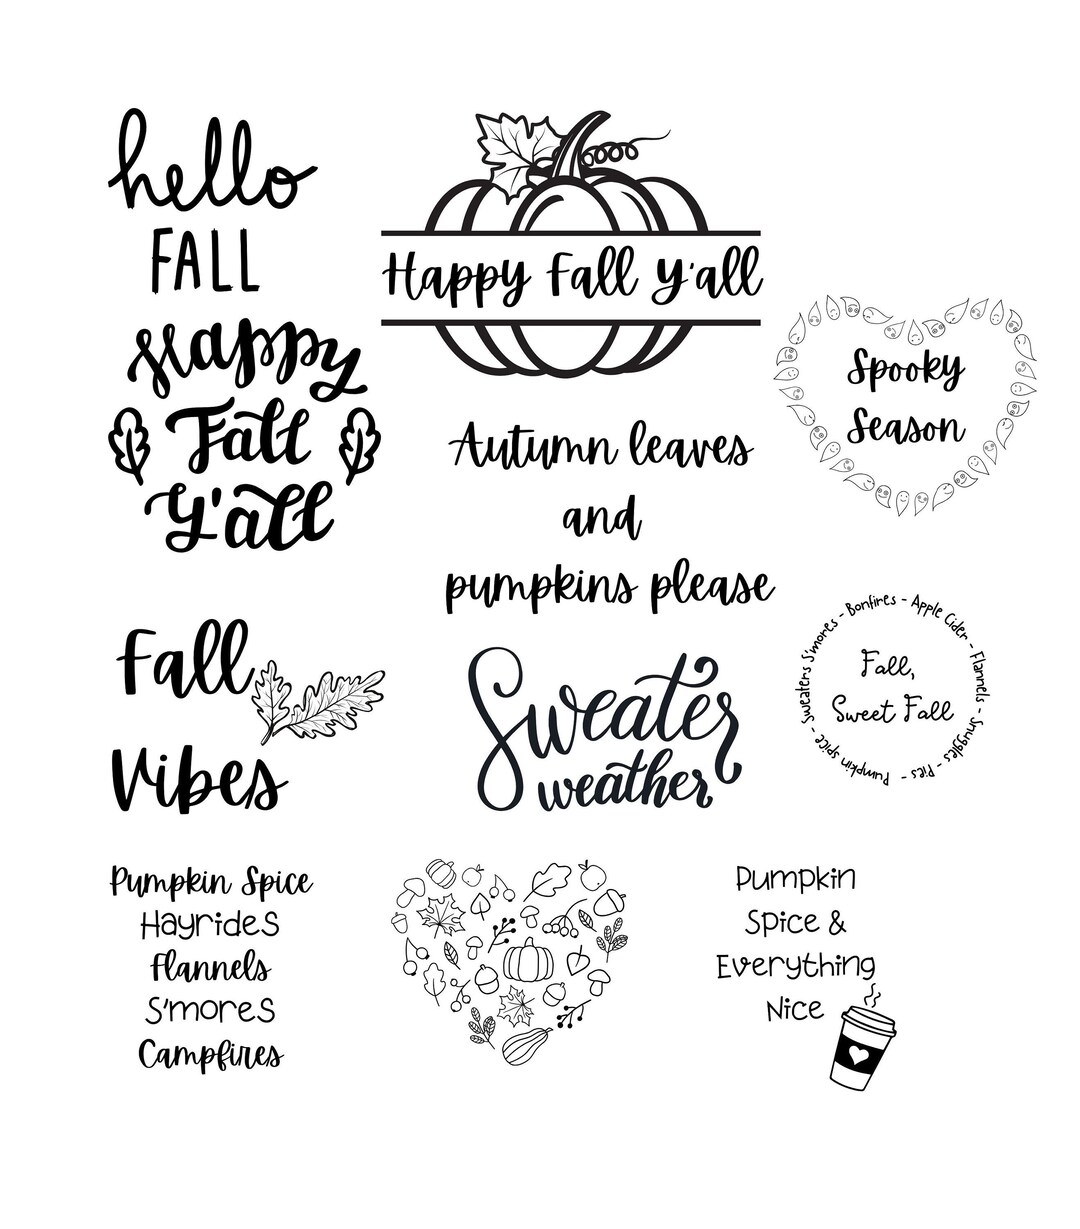 hello
FALL
Happy Fall Y'all
Happy
Fall
Y'all
Spooky
Season
Autumn leaves
and
pumpkins please
Fall
Vibes
Sweater
weather
Sweaters S'mores - Bonfires - Apple Cider - Flannels - Snuggles - Pies - Pumpkin spice -
Fall,
Sweet Fall
Pumpkin Spice
Hayrides
Flannels
S'mores
Campfires
Pumpkin
Spice &
Everything
Nice